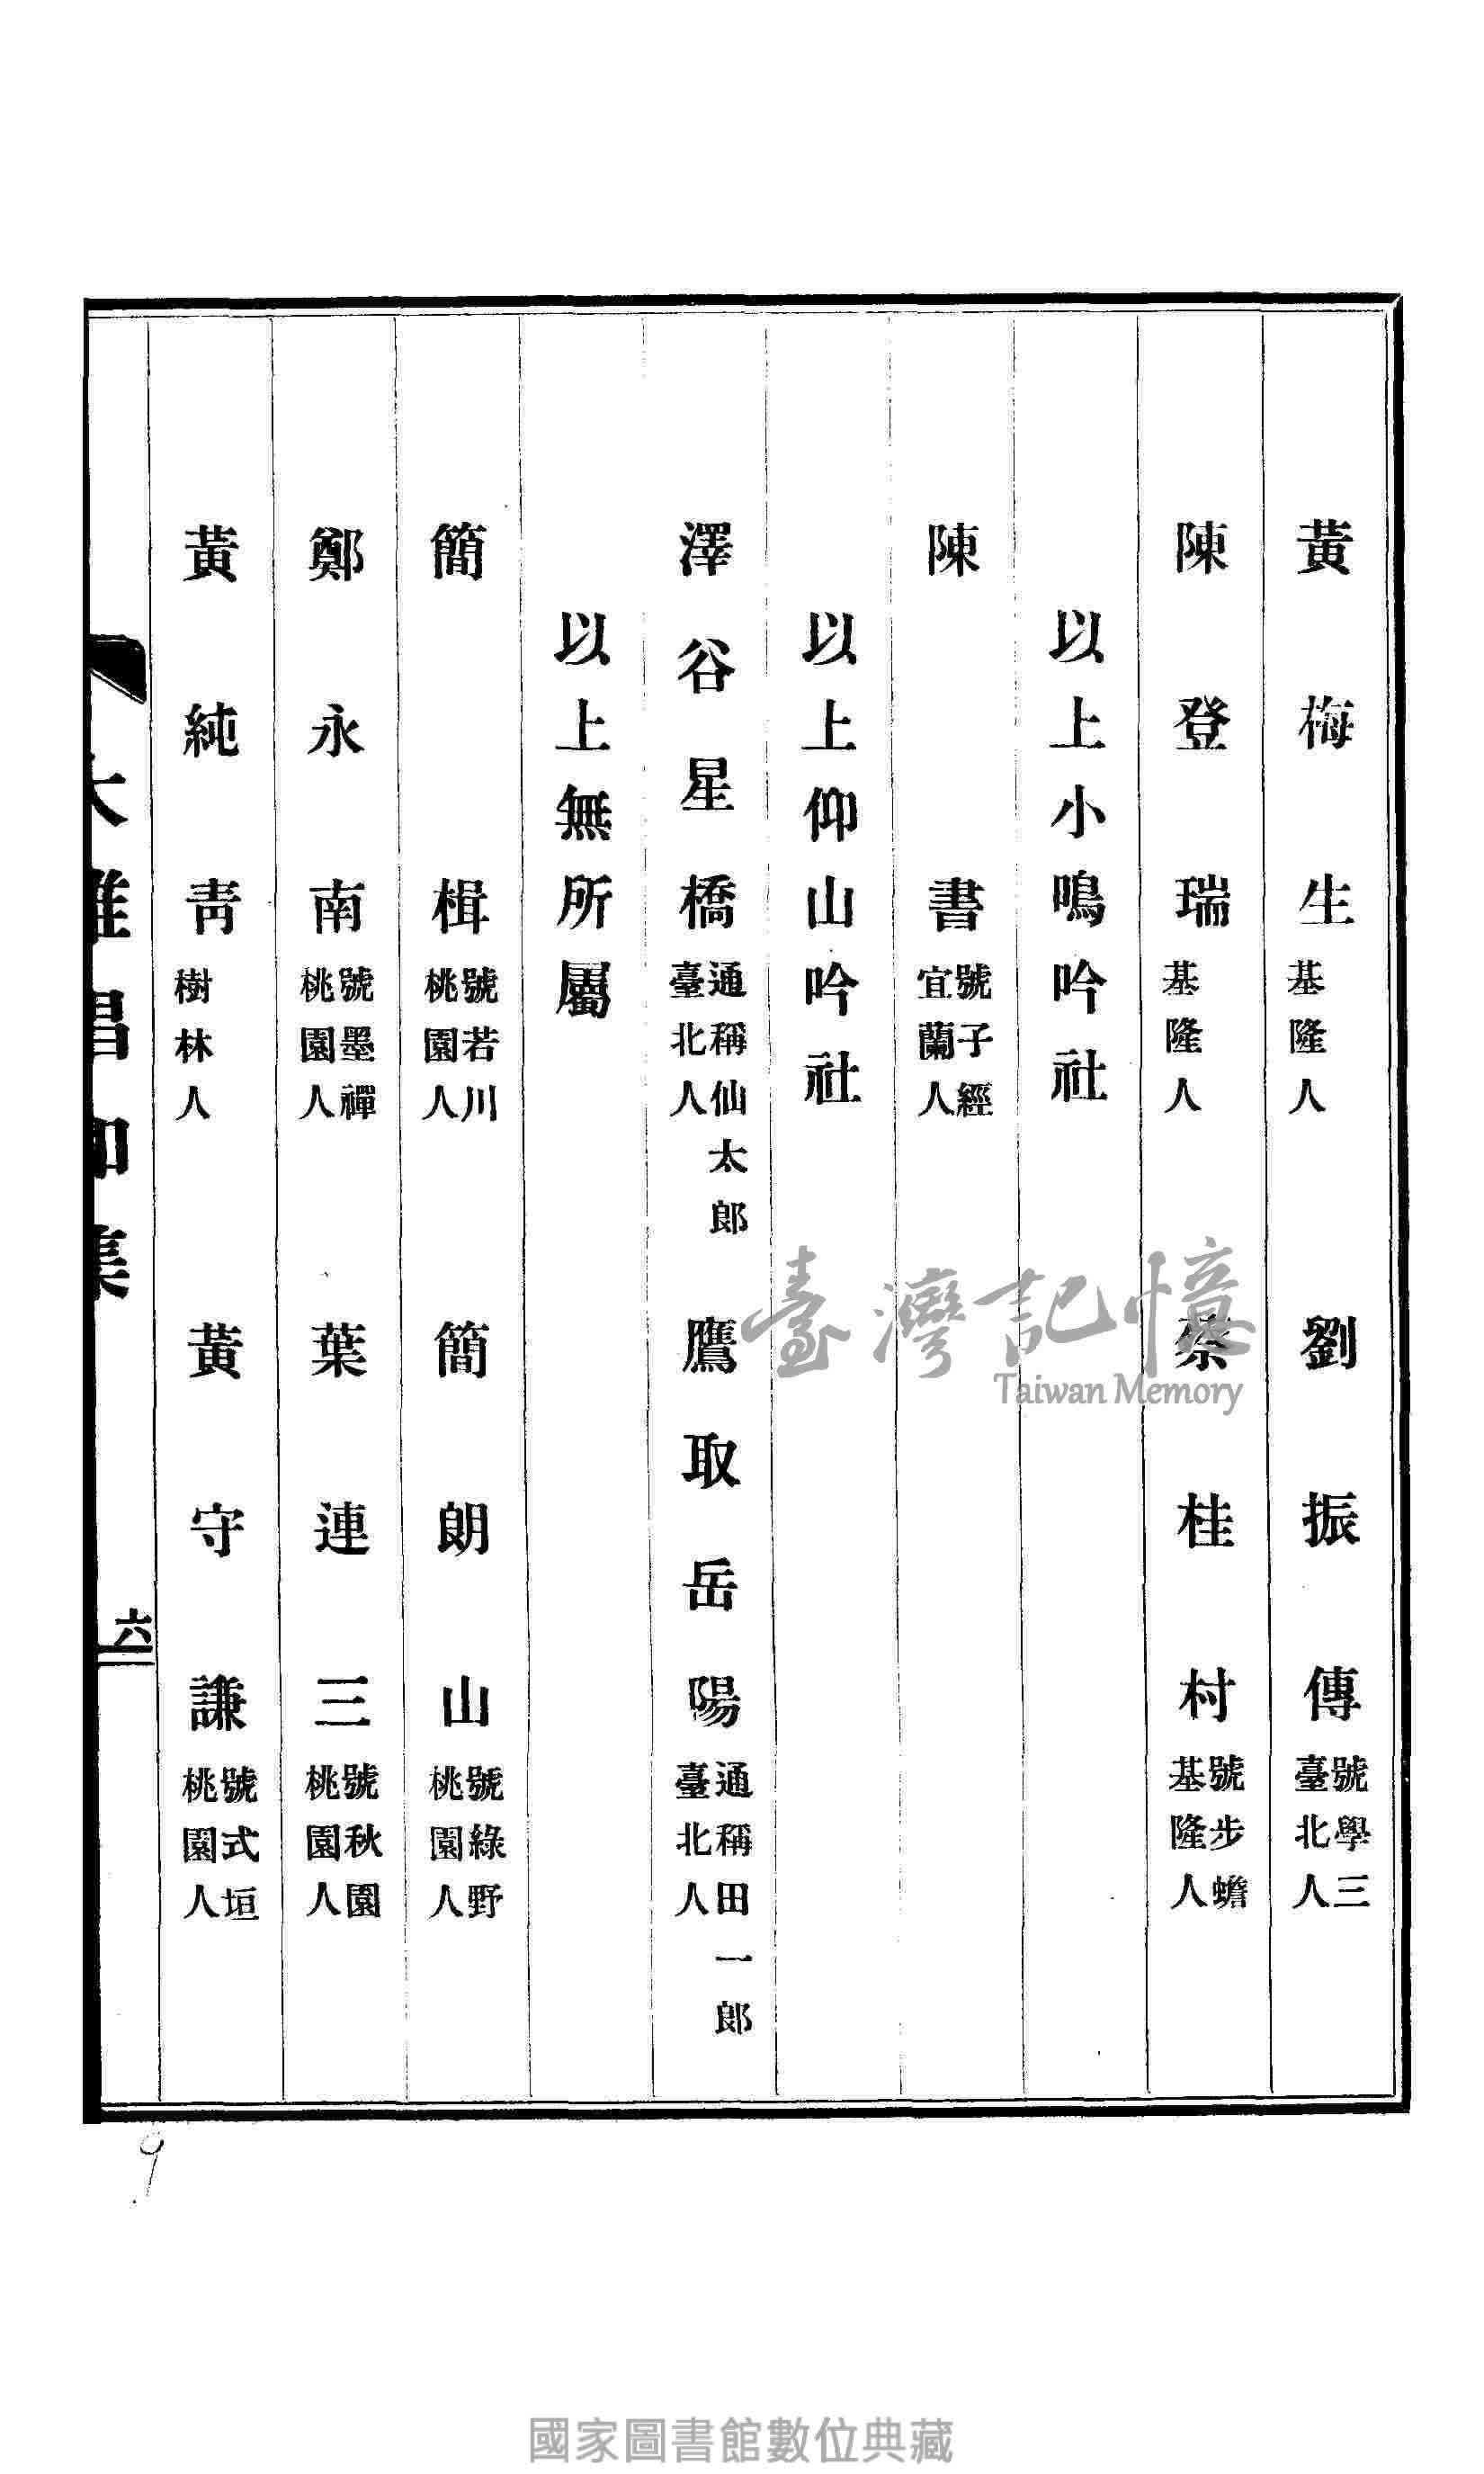 黃梅生 基隆人 劉振傳 號學三 臺北人
陳登瑞 基隆人 蔡桂村 號步蟾 基隆人
以上小鳴吟社
陳書 號子經 宜蘭人
以上仰山吟社
澤谷星橋 通稱仙太郎 臺北人 鷹取岳陽 通稱田一郎 臺北人
以上無所屬
簡楫 號若川 桃園人 簡朗山 號綠野 桃園人
鄭永南 號墨禪 桃園人 葉連三 號秋園 桃園人
黃純青 樹林人 黃守謙 號式垣 桃園人
大雅唱和集
六
臺灣記憶
Taiwan Memory
9
國家圖書館數位典藏